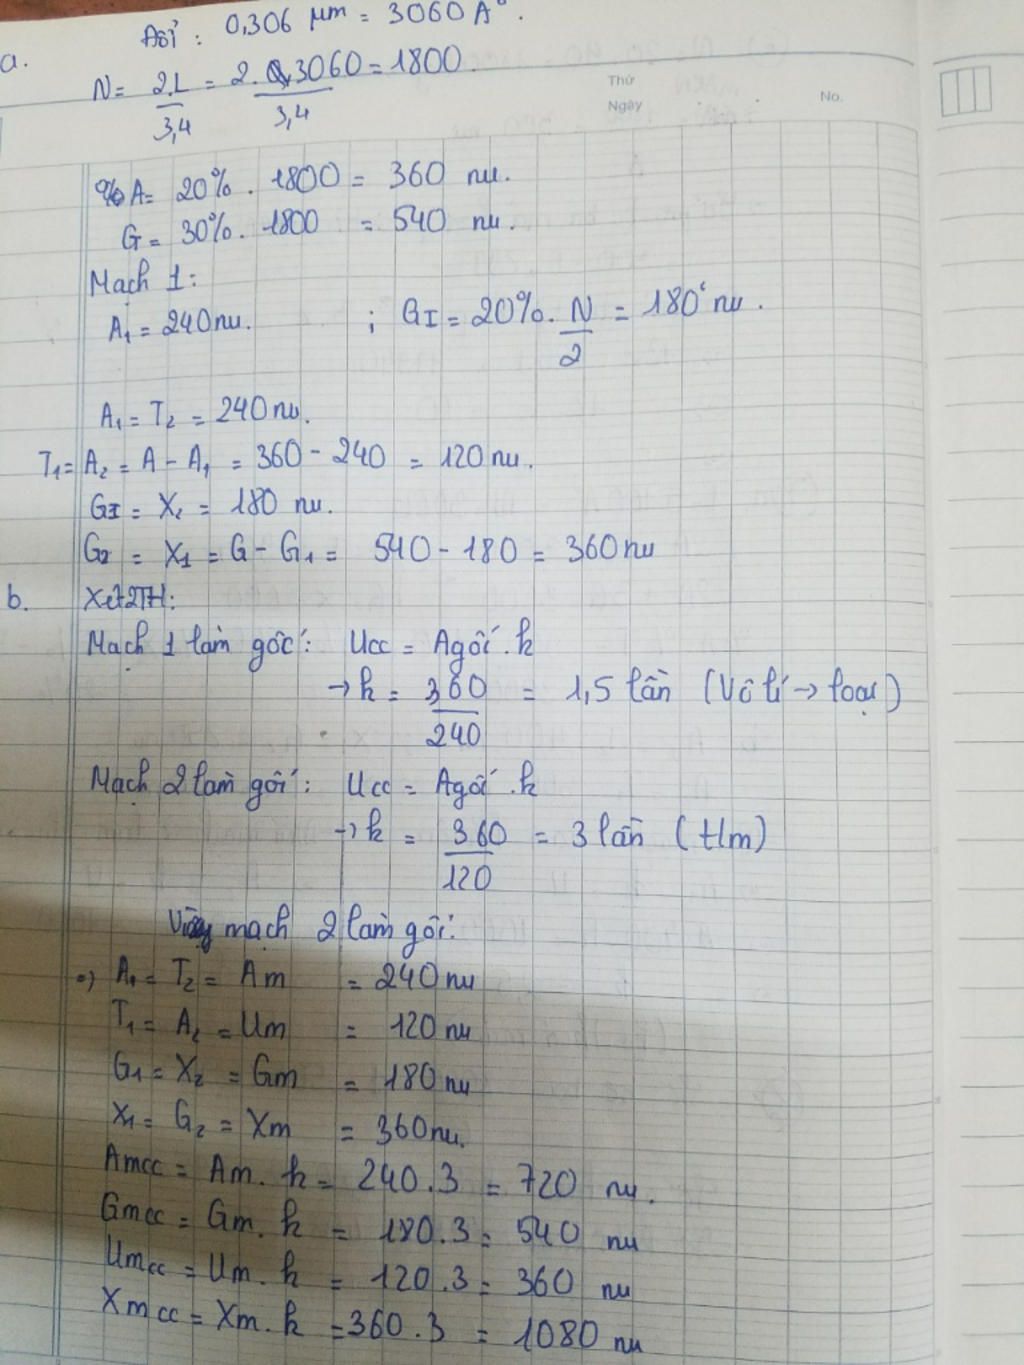 Đổi : 0,306 µm = 3060 A°.
a.
N = 2.L/3,4 = 2.3060/3,4 = 1800.
Thứ
Ngày
No.
%A = 20% . 1800 = 360 nu.
G = 30% . 1800 = 540 nu.
Mạch 1:
A1 = 240 nu. ; GI = 20%. N/2 = 180 nu.
A1 = T2 = 240 nu.
T1 = A2 = A - A1 = 360 - 240 = 120 nu.
GI = X2 = 180 nu.
G2 = X1 = G - G1 = 540 - 180 = 360 nu
b. Xét 2TH:
Mạch 1 làm gốc: Ucc = Agốc . k
→ k = 360/240 = 1,5 lần (Vô lí → loại)
Mạch 2 làm gốc: Ucc = Agốc . k
→ k = 360/120 = 3 lần (tlm)
Vậy mạch 2 làm gốc.
A1 = T2 = Am = 240 nu
T1 = A2 = Um = 120 nu
G1 = X2 = Gm = 180 nu
X1 = G2 = Xm = 360 nu.
Amcc = Am . k = 240.3 = 720 nu.
Gmcc = Gm . k = 180.3 = 540 nu
Umcc = Um . k = 120.3 = 360 nu
Xmcc = Xm . k = 360.3 = 1080 nu